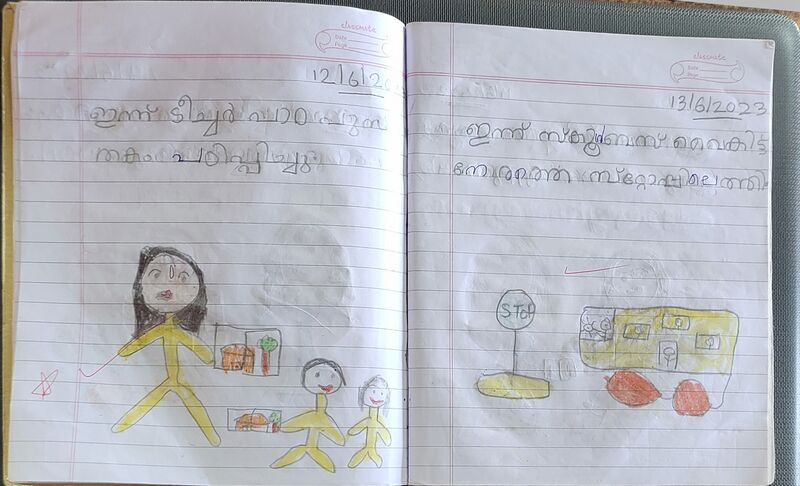 classmate
Date
Page
12/6/20
ഇന്ന് ടീച്ചർ പാഠ പുസ
തകം പഠിപ്പിച്ചു
classmate
Date
Page
13/6/2023
ഇന്ന് സ്കൂൾബസ് വൈകിട്ട്
നേരത്തെ സ്റ്റോപ്പിലെത്തി
STOP